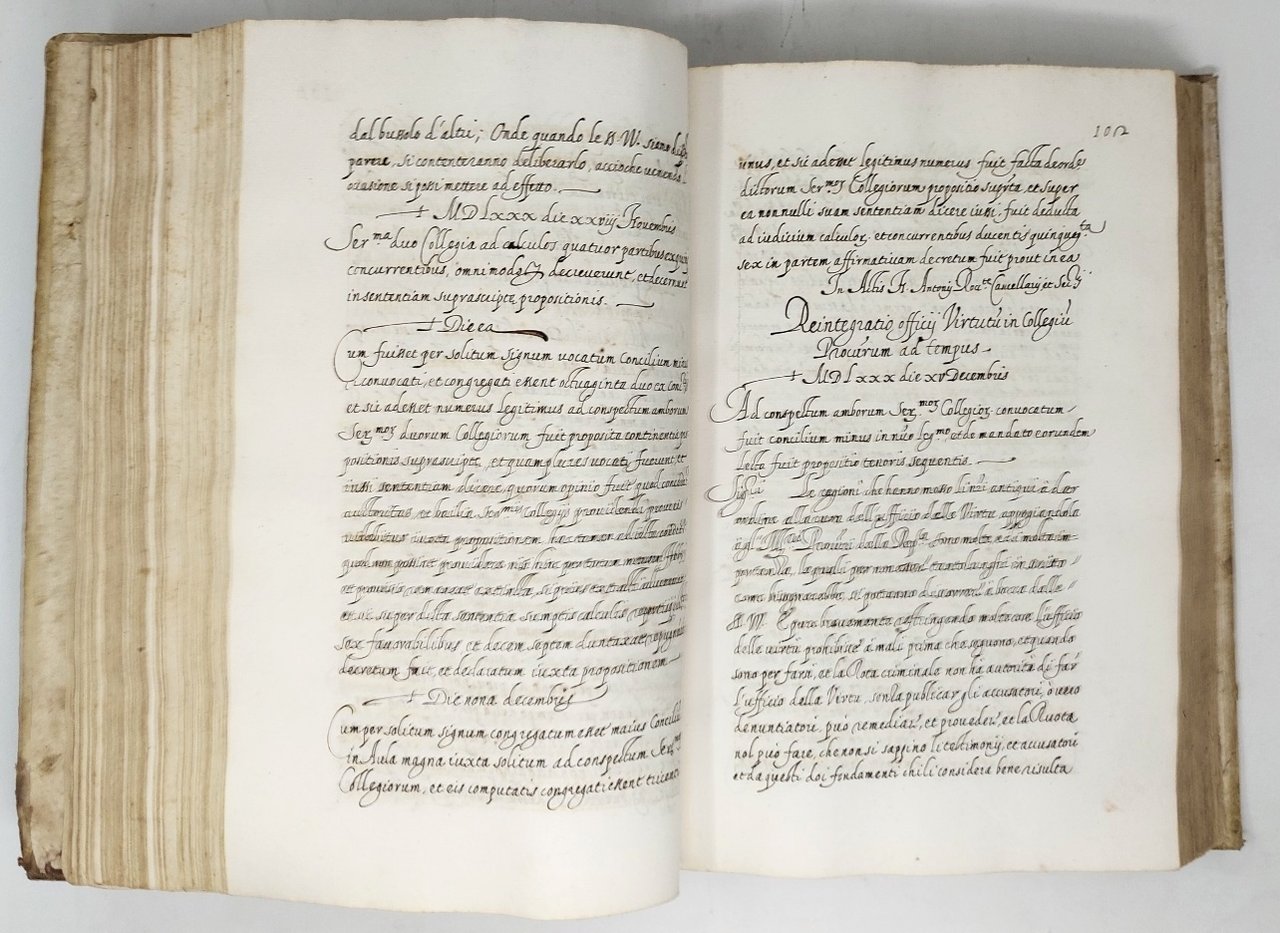 dal bussolo d'altri; Onde quando le S. W. siano di
parere, si contenteranno deliberarlo, accioche venendo
occasione si possi mettere ad effetto.
+ MDLxxx die xxviij Novembris
Ser.ma duo Collegia ad calculos quatuor partibus ex quinq
concurrentibus, omni modo decreverunt, et decernunt
in sententiam suprascriptę propositionis.
+ Die ea
Cum fuisset per solitum signum vocatum Concilium minus
convocati, et congregati essent octuaginta duo ex Cons
et sic adesset numerus legitimus ad conspectum amborum
Ser.mor duorum Collegiorum fuit proposita continentia pro
positionis suprascriptę, et quamplures vocati fuerunt, et
iussi sententiam dicere, quorum opinio fuit quod concedi
auctoritas, et bailia Ser.mis Collegijs providendi
iuxta propositionem hac tamen adiecta conditione
quod non possint providere nisi
et
et sic super dicta sententia sumptis calculis repertisque
sex favorabilibus et decem septem duntaxat repugnantibus
decretum fuit, et declaratum iuxta propositionem
+ Die nona decembris
Cum per solitum signum congregatum esset maius Concilium
in Aula magna iuxta solitum ad conspectum Ser.mor
Collegiorum, et eis computatis congregati essent tricenti
102
unus, et sic adesset legitimus numerus fuit facta de orde
dictorum Ser.mor Collegiorum propositio suprta, et super
ea nonnulli suam sententiam dicere iussi, fuit deducta
ad iudicium calculor. et concurrentibus ducentis quinquagta
sex in partem affirmativam decretum fuit prout in ea
In Actis A. Antonij Roc.te Cancellarij et Secrij
Reintegratio officij Virtutū in Collegiū
Procurum ad tempus
+ MDLxxx die xv Decembris
Ad conspectum amborum Ser.mor Collegior. convocatum
fuit concilium minus in nūo leg.mo, et de mandato eorundem
lecta fuit propositio tenoris sequentis.
Sig.ri Le ragioni che hanno mosso li nr̄i antiqui à dar
ordine alla cura dell'ufficio delle Virtu, appogiandola
à gl' Ill.ri Procuri della Rep.ca sono molte, e di molta im=
portanza, le quali per non esser tanto longhi in scritto
come bisognarebbe, si potranno discorrere à bocca dalle
S. W. E pure brevemente restringendo molte cose l'ufficio
delle virtù prohibisce à mali prima che seguono, et quando
sono per farsi, et la Rota criminale non ha autorità di far
l'ufficio della Virtu, senza publicar gli accusatori, ò vero
denuntiatori può remediar, et proveder, et la Ruota
nol può fare, che non si sappino li testimonij, et accusatori
et da questi doi fondamenti chi li considera bene risulta